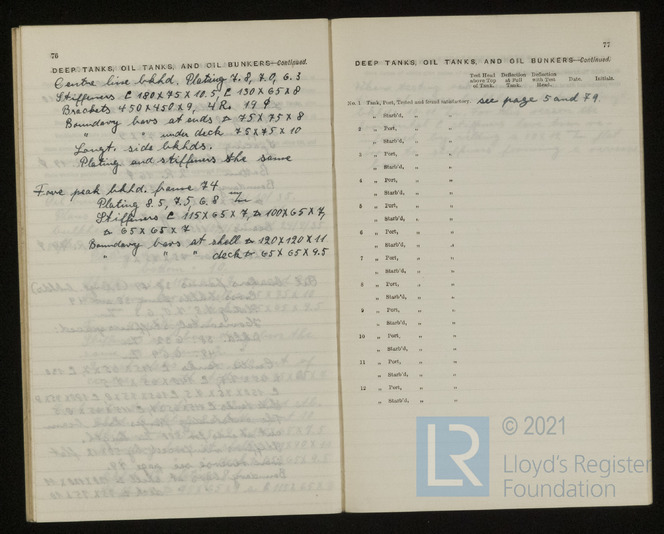 76
DEEP TANKS, OIL TANKS, AND OIL BUNKERS—Continued.
Centre line bkhd. Plating 7.8, 7.0, 6.3
Stiffeners [ 180 X 75 X 10.5, [ 130 X 65 X 8
Brackets 450 X 450 X 9, 4 Rs 19 φ
Boundary bars at ends 75 X 75 X 8
" under deck 75 X 75 X 10
Longt. side bkhds.
Plating and stiffeners the same
Fore peak bkhd. frame 74
Plating 8.5, 7.5, 6.8 m/m
Stiffeners [ 115 X 65 X 7, 100 X 65 X 7,
65 X 65 X 7
Boundary bars at shell 120 X 120 X 11
" " " deck 65 X 65 X 9.5
77
DEEP TANKS, OIL TANKS, AND OIL BUNKERS—Continued.
Test Head above Top of Tank. Deflection at Full Tank. Deflection with Test Head. Date. Initials.
No. 1 Tank, Port, Tested and found satisfactory. see page 5 and 79.
" Starb'd, " "
2 " Port, " "
" Starb'd, " "
3 " Port, " "
" Starb'd, " "
4 " Port, " "
" Starb'd, " "
5 " Port, " "
" Starb'd, " "
6 " Port, " "
" Starb'd, " "
7 " Port, " "
" Starb'd, " "
8 " Port, " "
" Starb'd, " "
9 " Port, " "
" Starb'd, " "
10 " Port, " "
" Starb'd, " "
11 " Port, " "
" Starb'd, " "
12 " Port, " "
" Starb'd, " "
LR © 2021
Lloyd's Register
Foundation